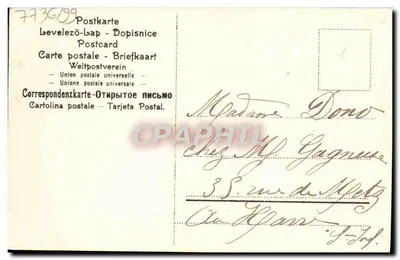 7736/99
Postkarte
Levelezö-Lap - Dopisnice
Postcard
Carte postale - Briefkaart
Weltpostverein
- Union postale universelle -
- Unione postale universale -
Correspondenzkarte-Открытое письмо
Cartolina postale - Tarjeta Postal.
CPAPHIL
Madame Dono
chez M Gagneuse
35 rue de Metz
au Havre
S-Inf.